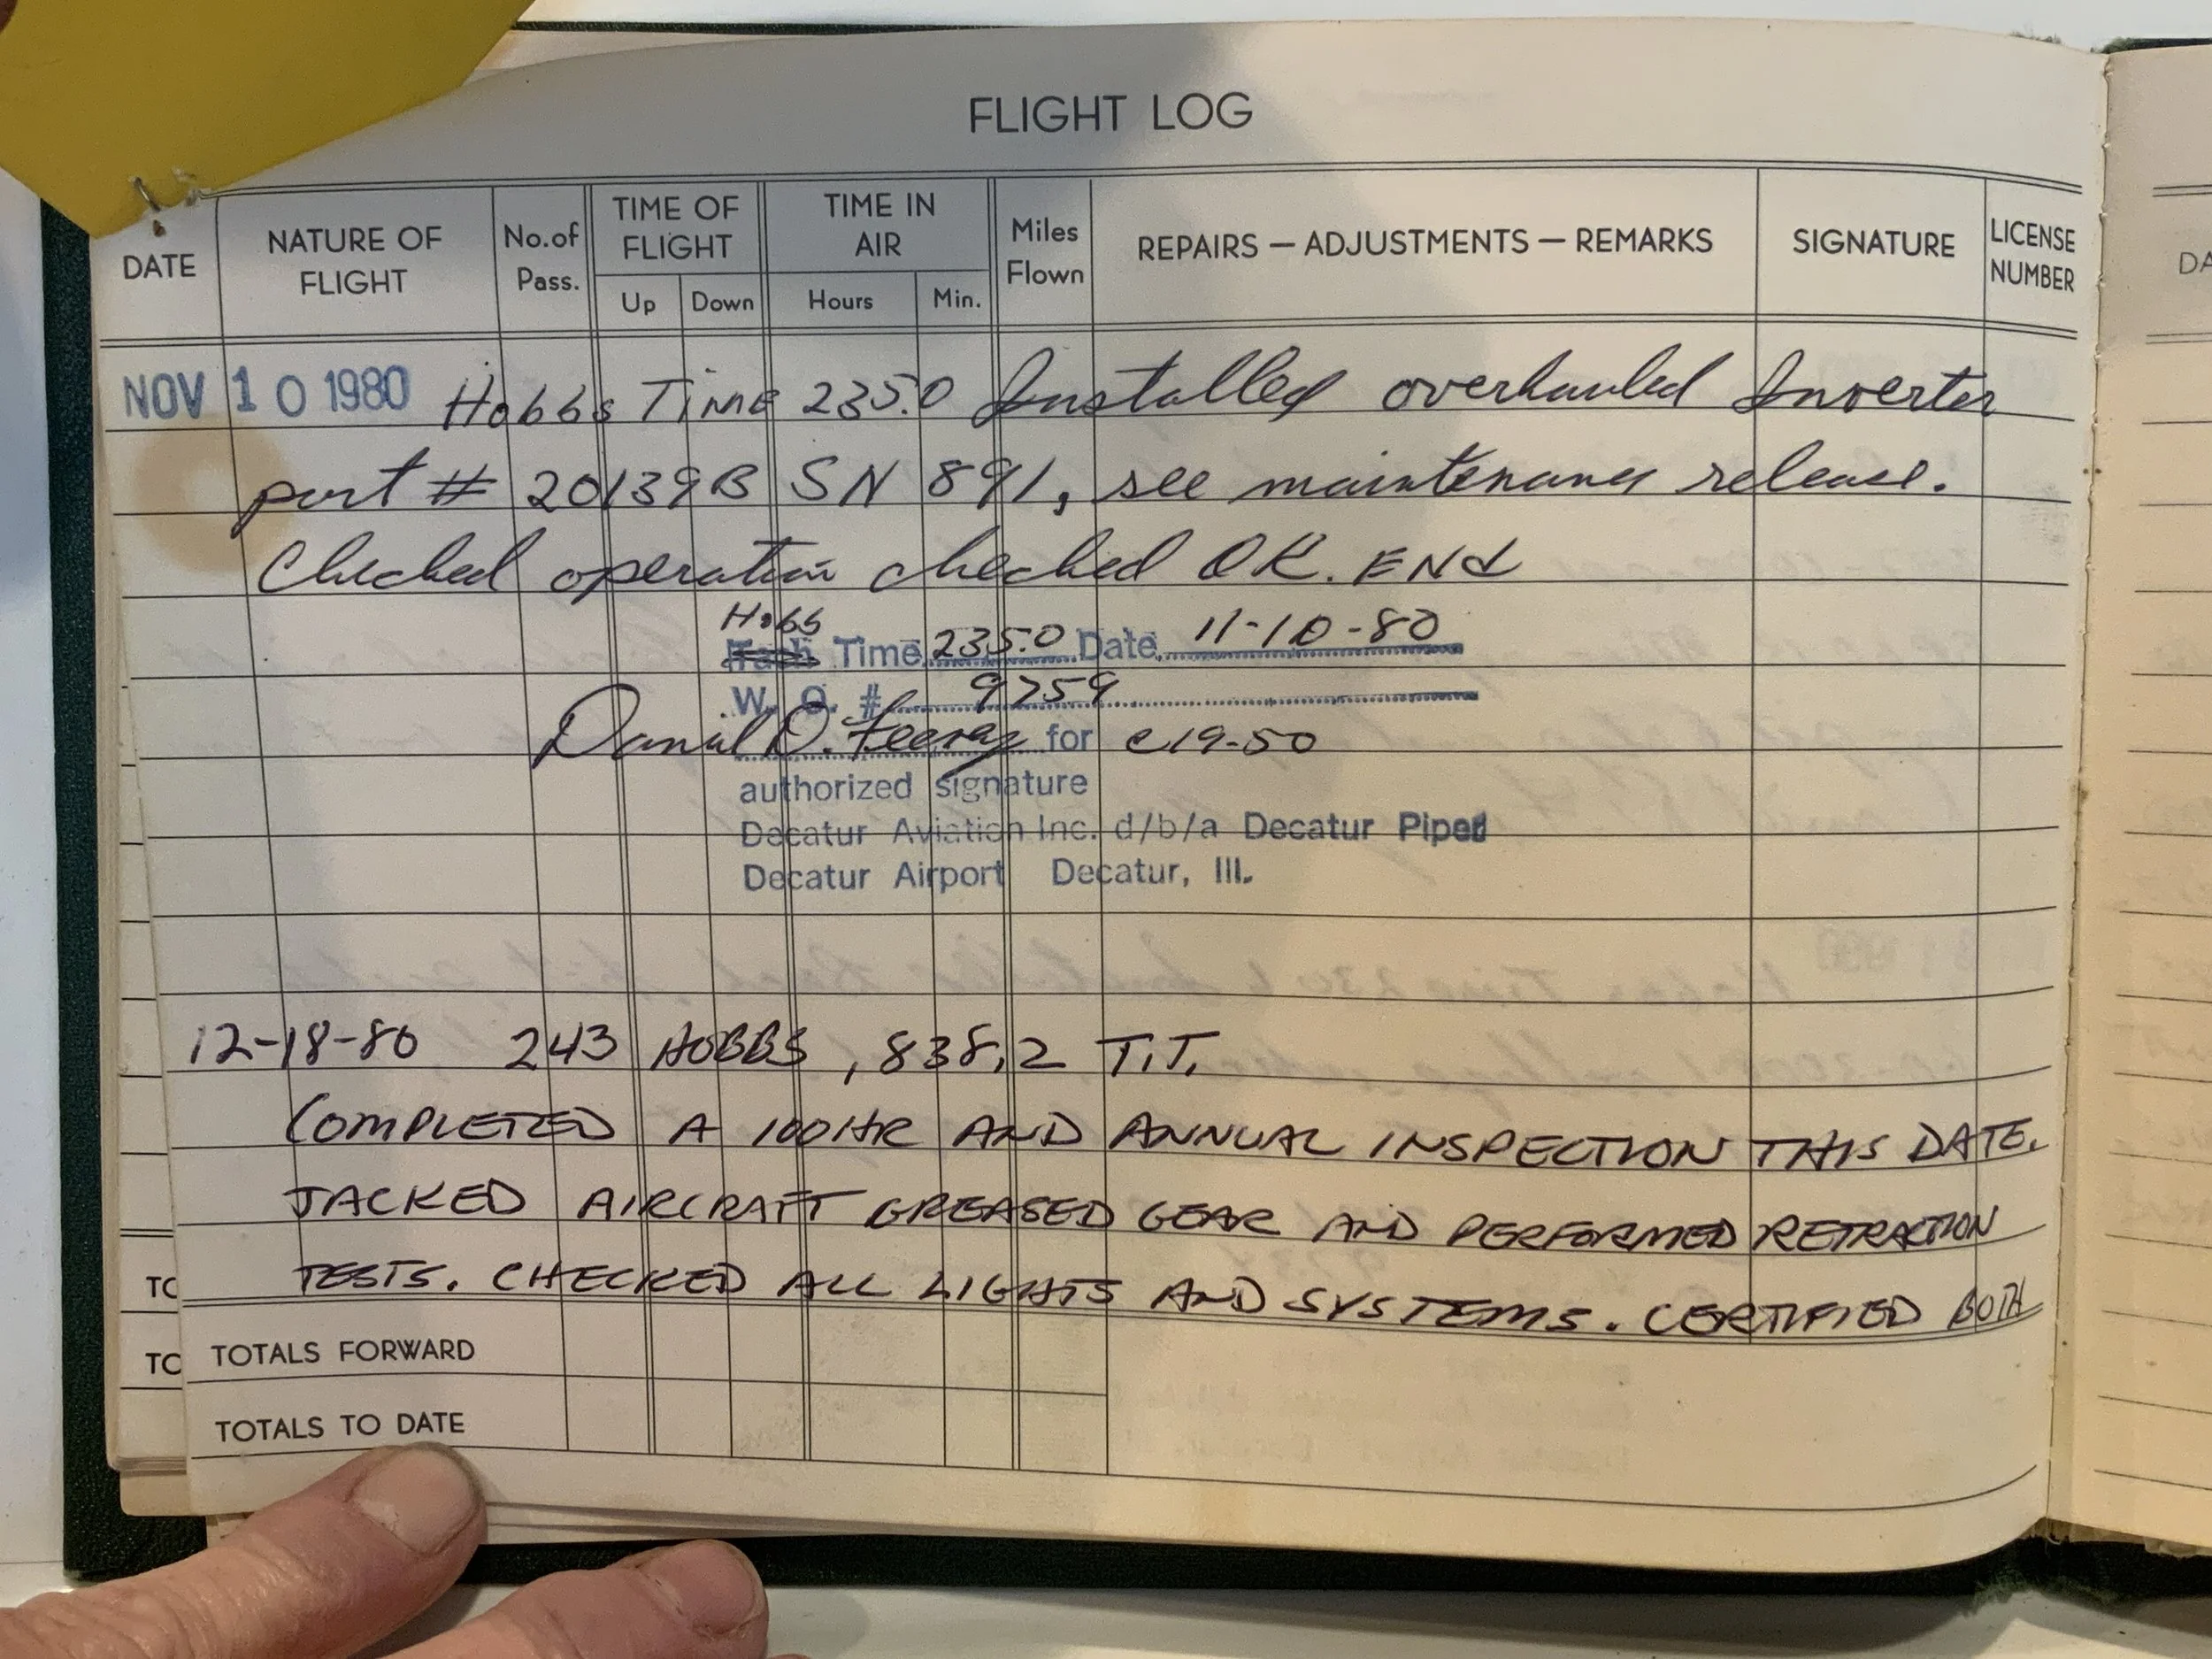 FLIGHT LOG
DATE NATURE OF FLIGHT No. of Pass. TIME OF FLIGHT Up Down TIME IN AIR Hours Min. Miles Flown REPAIRS — ADJUSTMENTS — REMARKS SIGNATURE LICENSE NUMBER
NOV 10 1980 Hobbs Time 235.0 Installed overhauled Inverter
part # 20139B SN 891, see maintenance release.
Checked operation checked OK. END
Hobbs
Tach Time 235.0 Date 11-10-80
W. O. # 9759
Daniel O. for c19-50
authorized signature
Decatur Aviation Inc. d/b/a Decatur Piper
Decatur Airport Decatur, Ill.
12-18-80 243 HOBBS, 838.2 T.T.
COMPLETED A 100HR AND ANNUAL INSPECTION THIS DATE.
JACKED AIRCRAFT GREASED GEAR AND PERFORMED RETRACTION
TESTS. CHECKED ALL LIGHTS AND SYSTEMS. CERTIFIED BOTH
TOTALS FORWARD
TOTALS TO DATE
TO
TO
DA